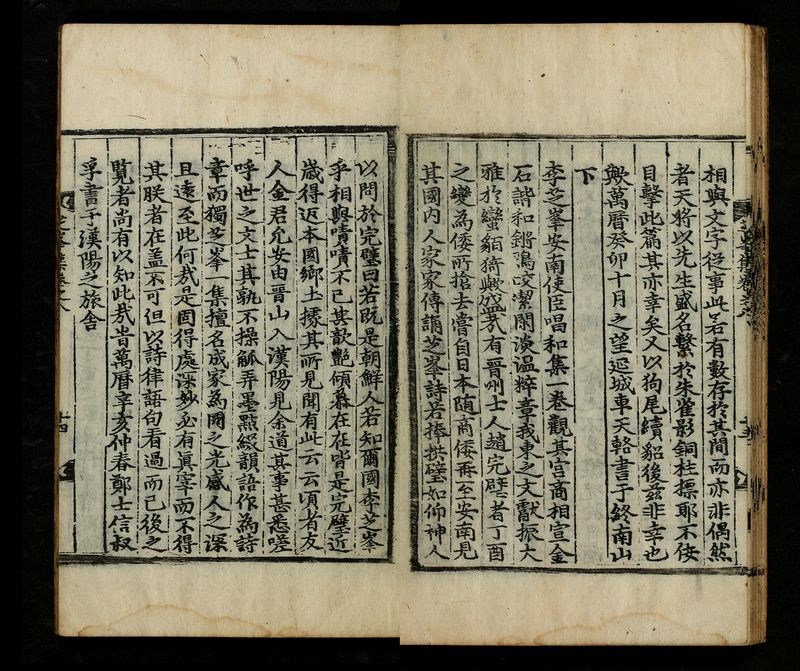 相與文字從事此若有數存於其間而亦非偶然
者天將以先生盛名繫於朱雀影銅柱摽耶不侫
目擊此篇其亦幸矣又以狗尾續貂後玆非幸也
歟萬曆癸卯十月之望延城車天輅書于終南山
下
李芝峯安南使臣唱和集一卷觀其宮商相宣金
石諧和鏘鴻皎潔閑淡温粹壹我東之文獻振大
雅於蠻貊猗歟盛哉有晋州士人趙完璧者丁酉
之變為倭所搶去嘗自日本随商倭再至安南見
其國内人家家傳誦芝峯詩若捧拱璧如仰神人
以問於完璧曰若旣是朝鮮人若知爾國李芝峯
乎相與嘖嘖不已其歆艶傾慕在在皆是完璧近
歲得返本國鄉土據其所見聞有此云云頃者友
人金君允安由晋山入漢陽見余道其事甚悉嗟
呼世之文士其孰不操觚弄墨點綴韻語作為詩
章而獨芝峯一集擅名成家為國之光感人之深
且遠至此何哉是固得處深妙必有眞宰而不得
其朕者在盖不可但以詩律語句看過而已後之
覽者尚有以知此哉昔萬曆辛亥仲春鄭士信叔
孚書于漢陽之旅舍
芝峯集卷之八
十四